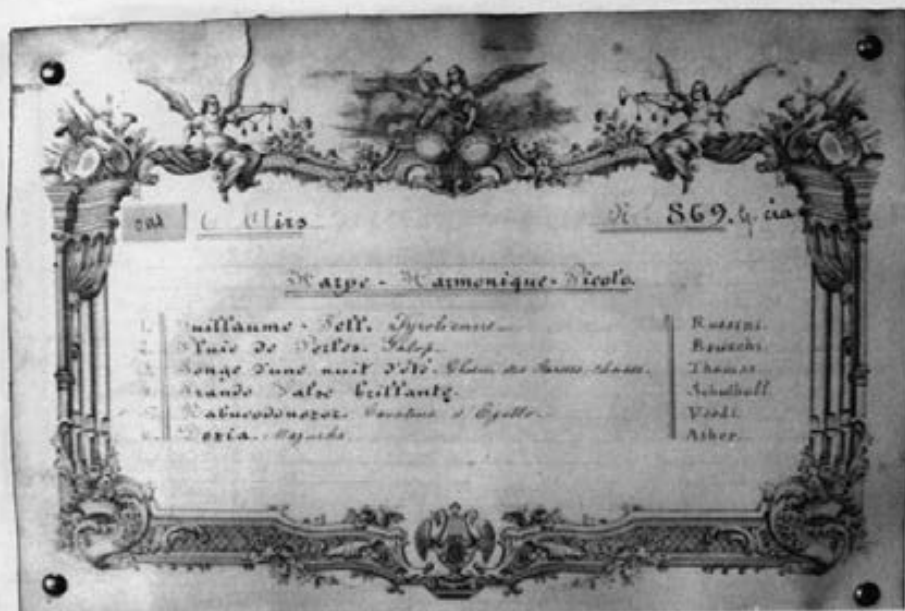 6 Airs
869.
Harpe - Harmonique - Picolo.
1. Guillaume - Tell. Tyrolienne. Rossini.
2. Pluie de Perles. Galop.
3. Songe d'une nuit d'été. Chœur des Gardes-chasse. Thomas.
4. Grande Valse brillante. Schulhoff.
5. Nabucodonozor. Verdi.
6. Doria. Mazurka. Asher.